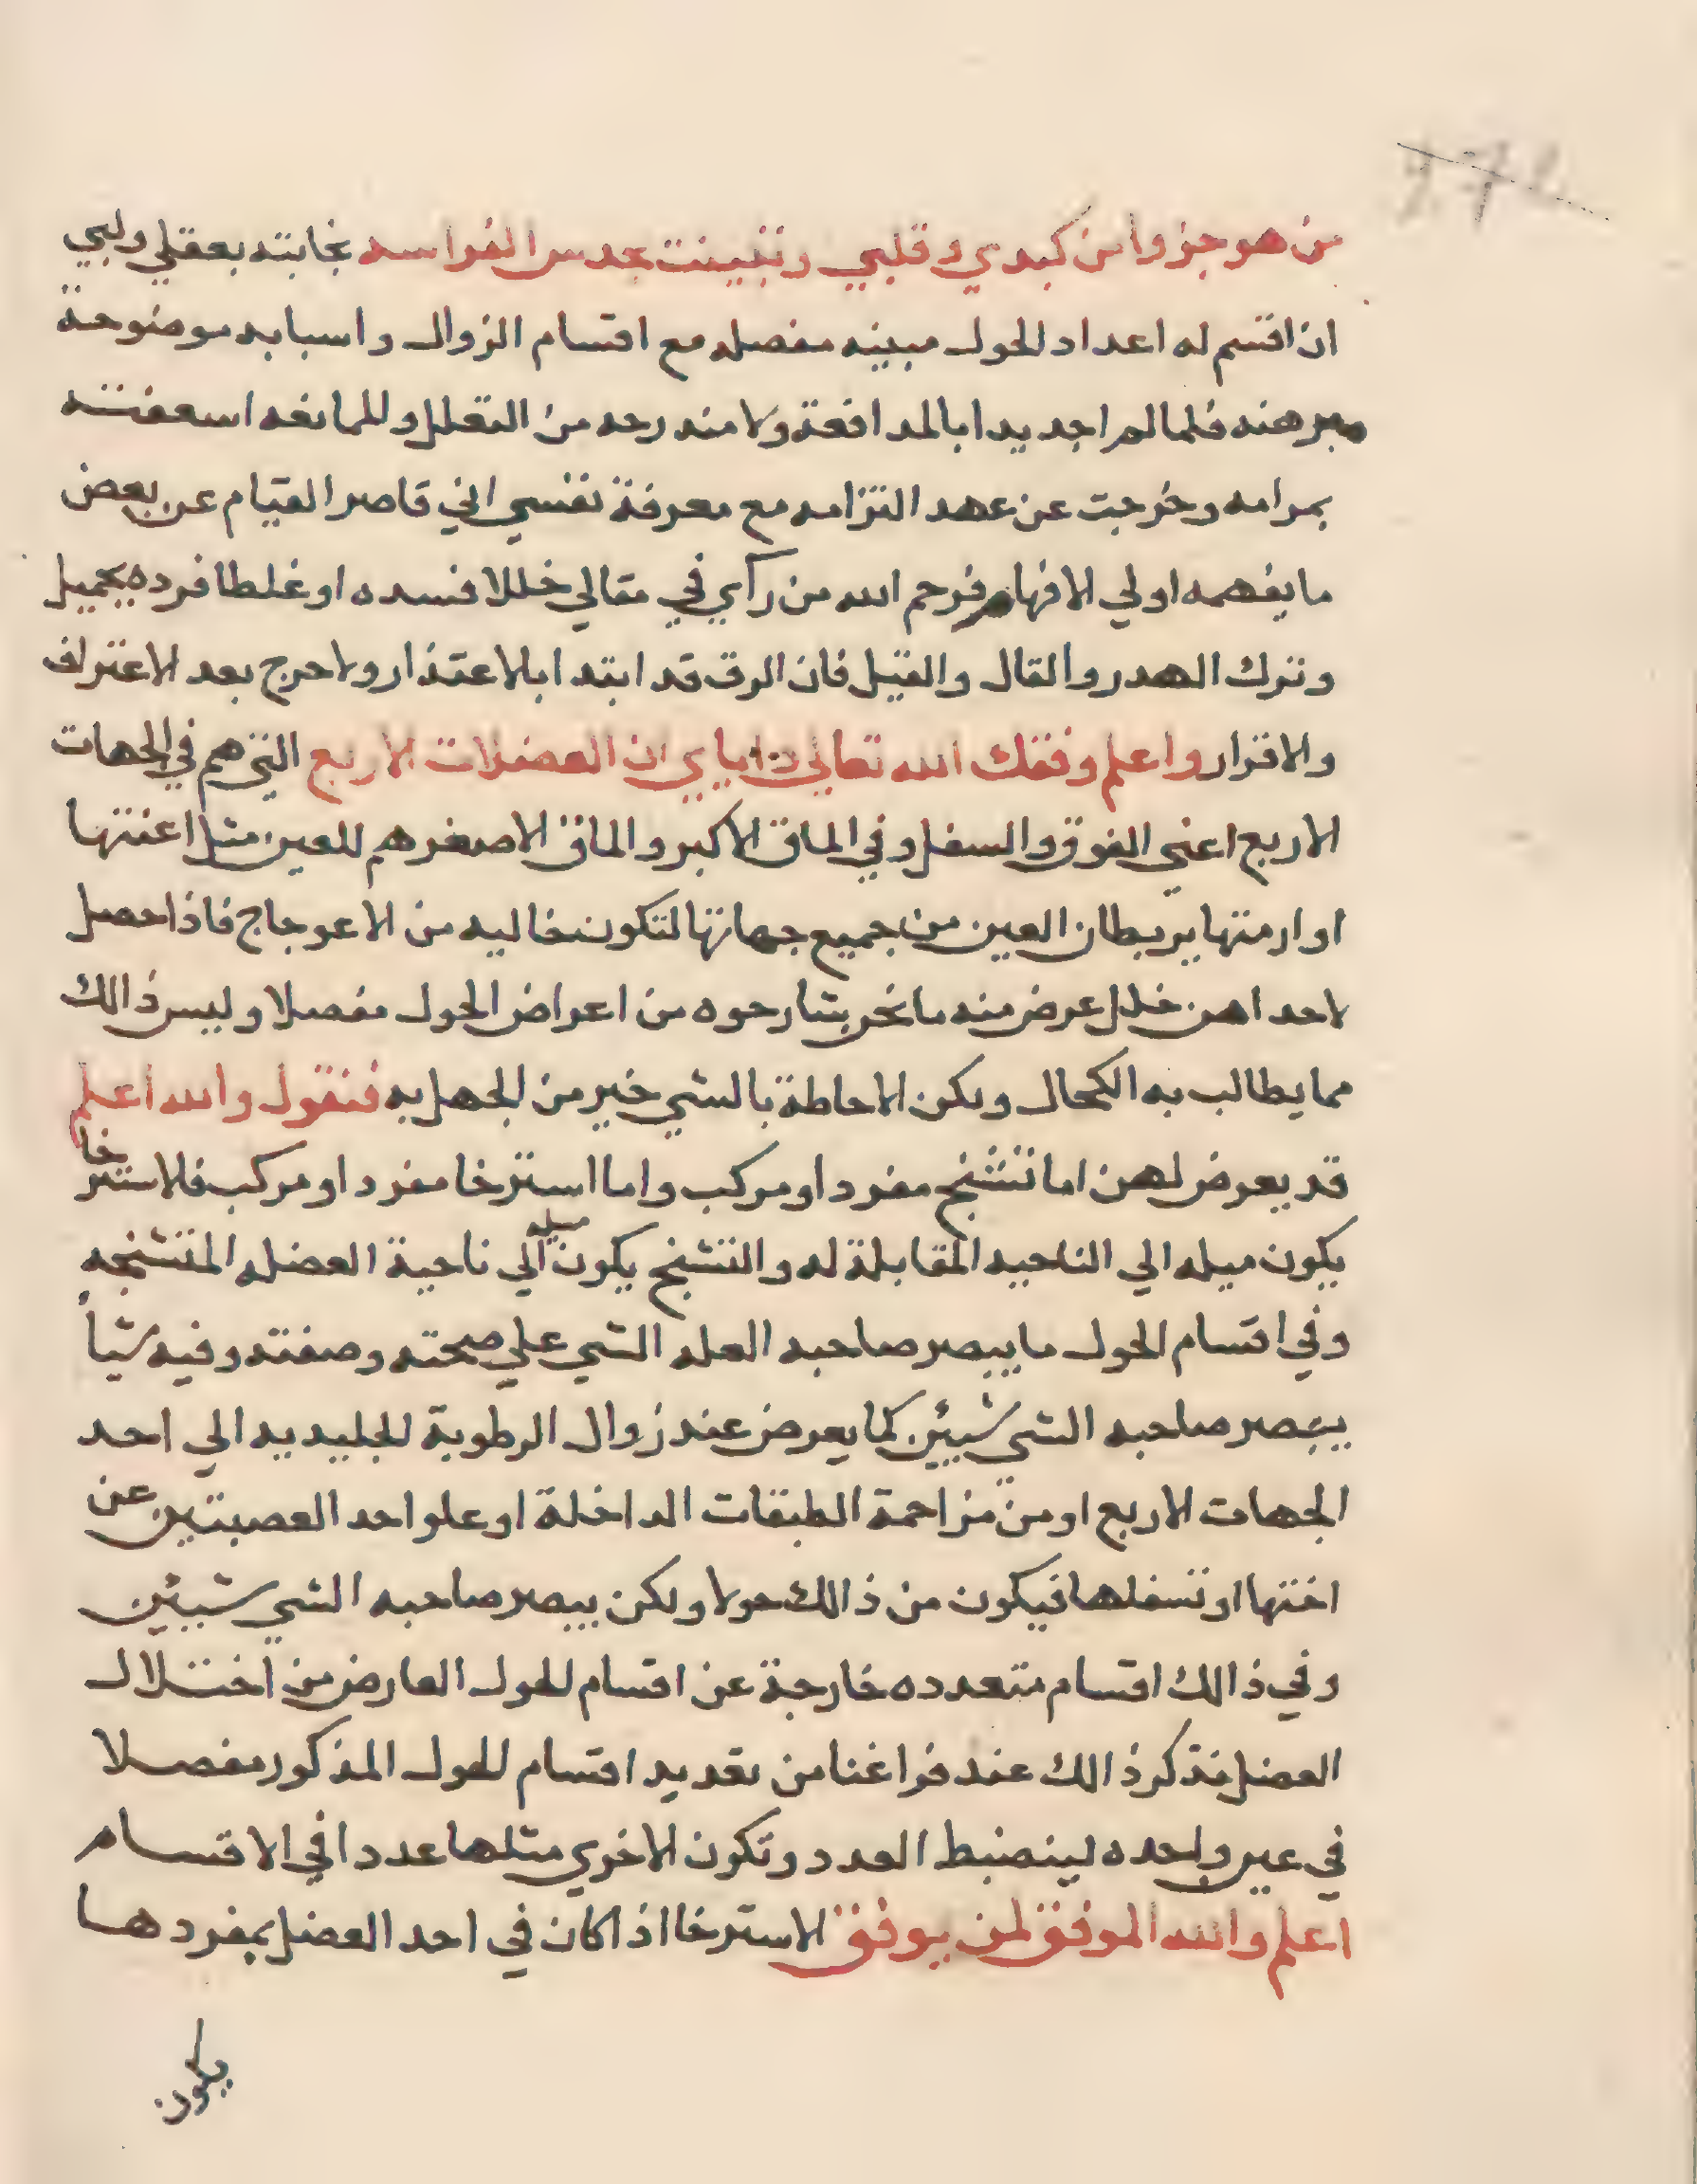 من هو جزوا من كبدي وقلبي وتبينت بحدس الفراسه نجابته بعقلي ولبي
ان اقسم له اعداد الحول مبينه مفصله مع اقسام الزوال واسبابه موضوحة
مبرهنه فلما لم اجد يدا بالمدافعة ولا مندرحه من التعلل وللمانعه اسعفته
بمرامه وخرجت عن عهد التزامه مع معرفة نفسي اني قاصر القيام عن بعض
ما يفهمه اولي الافهام فرحم الله من رآي في مقالي خللا فسده او غلطا فرده بجميل
وترك الهدر والقال والقيل فان الرق قد ابتدا بالاعتذار ولا حرج بعد الاعتراف
والاقرار واعلم وفقك الله تعالي واياي ان العضلات الاربع التي هم في الجهات
الاربع اعني الفوق والسفل وفي الماق الاكبر والماق الاصغر هم للعين مثل اعنتها
او ارمتها يربطان العين من جميع جهاتها لتكون خاليه من الاعوجاج فاذا احصل
لاحداهن خلل عرض منه ما نحن بشارحوه من اعراض الحول مفصلا وليس ذالك
مما يطالب به الكحال ولكن الاحاطة بالشي خير من الجهل به فنقول والله اعلم
قد يعرض لهن اما تشنج مفرد او مركب واما استرخا مفرد او مركب فلاسترخا
يكون ميله الي الناحيه المقابلة له والتشنج يكون ميله الي ناحية العضله المتشنجه
وفي اقسام الحول ما يبصر صاحبه العله الشي علي صحته وصفته وفيه شيأ
يبصر صاحبه الشي شيئين كما يعرض عند زوال الرطوبة الجليديه الي احد
الجهات الاربع او من مزاحمة الطبقات الداخلة او علو احد العصبتين عن
اختها او تسفلها فيكون من ذالك حولا ولكن يبصر صاحبه الشي شيئين
وفي ذالك اقسام متعدده خارجة عن اقسام الحول العارض من اختلال
العضل فنذكر ذالك عند فراغنا من تعديد اقسام الحول المذكور مفصلا
في عين واحده لينضبط العدد وتكون الاخري مثلها عددا في الاقسام
اعلم والله الموفق لمن يوفق الاسترخا اذا كان في احد العضل بمفردها
يكون